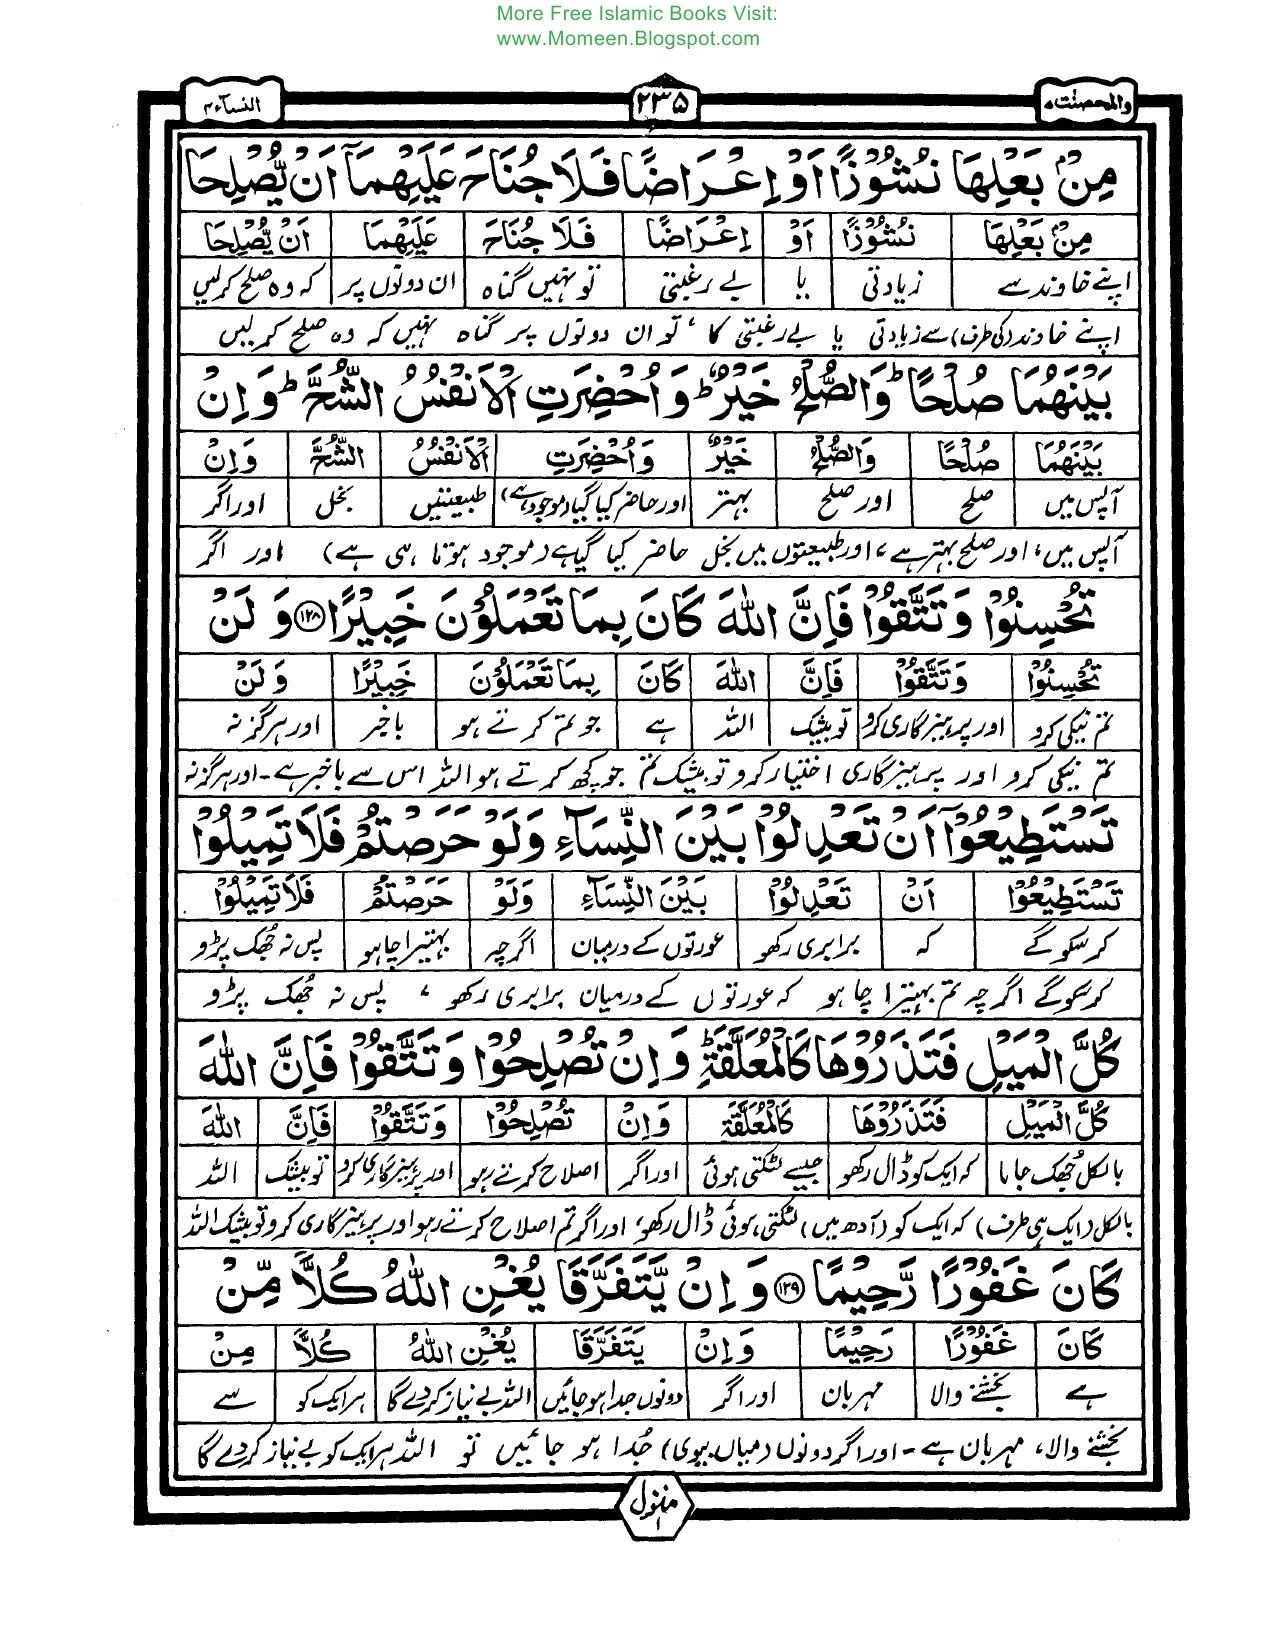 More Free Islamic Books Visit:
www.Momeen.Blogspot.com
والمحصنٰت ۵ ۲۳۵ النسآء ۴
مِنْۢ بَعْلِهَا نُشُوْزًا اَوْ اِعْرَاضًا فَلَا جُنَاحَ عَلَیْهِمَاۤ اَنْ یُّصْلِحَا
مِنْۢ بَعْلِهَا نُشُوْزًا اَوْ اِعْرَاضًا فَلَا جُنَاحَ عَلَیْهِمَا اَنْ یُّصْلِحَا
اپنے خاوند سے زیادتی یا بے رغبتی تو نہیں گناہ ان دونوں پر کہ وہ صلح کر لیں
اپنے خاوند (کی طرف) سے زیادتی یا بے رغبتی کا ، تو ان دونوں پر گناہ نہیں کہ وہ صلح کر لیں
بَیْنَهُمَا صُلْحًا ؕ وَالصُّلْحُ خَیْرٌ ؕ وَاُحْضِرَتِ الْاَنْفُسُ الشُّحَّ ؕ وَاِنْ
بَیْنَهُمَا صُلْحًا وَالصُّلْحُ خَیْرٌ وَاُحْضِرَتِ الْاَنْفُسُ الشُّحَّ وَاِنْ
آپس میں صلح اور صلح بہتر اور حاضر کیا گیا (موجود ہے) طبیعتیں بخل اور اگر
آپس میں، اور صلح بہتر ہے، اور طبیعتوں میں بخل حاضر کیا گیا ہے (موجود ہوتا ہی ہے) اور اگر
تُحْسِنُوْا وَتَتَّقُوْا فَاِنَّ اللّٰهَ كَانَ بِمَا تَعْمَلُوْنَ خَبِیْرًا ۝۱۲۸ وَلَنْ
تُحْسِنُوْا وَتَتَّقُوْا فَاِنَّ اللّٰهَ كَانَ بِمَا تَعْمَلُوْنَ خَبِیْرًا وَلَنْ
تم نیکی کرو اور پرہیزگاری کرو تو بیشک اللہ ہے جو تم کرتے ہو باخبر اور ہرگز نہ
تم نیکی کرو اور پرہیزگاری اختیار کرو تو بیشک تم جو کچھ کرتے ہو اللہ اس سے باخبر ہے ۔ اور ہرگز نہ
تَسْتَطِیْعُوْۤا اَنْ تَعْدِلُوْا بَیْنَ النِّسَآءِ وَلَوْ حَرَصْتُمْ فَلَا تَمِیْلُوْا
تَسْتَطِیْعُوْا اَنْ تَعْدِلُوْا بَیْنَ النِّسَآءِ وَلَوْ حَرَصْتُمْ فَلَا تَمِیْلُوْا
کر سکو گے کہ برابری رکھو عورتوں کے درمیان اگرچہ بہتیرا چاہو پس نہ جُھک پڑو
کر سکو گے اگرچہ تم بہتیرا چاہو کہ عورتوں کے درمیان برابری رکھو ، پس نہ جُھک پڑو
كُلَّ الْمَیْلِ فَتَذَرُوْهَا كَالْمُعَلَّقَةِ ؕ وَاِنْ تُصْلِحُوْا وَتَتَّقُوْا فَاِنَّ اللّٰهَ
كُلَّ الْمَیْلِ فَتَذَرُوْهَا كَالْمُعَلَّقَةِ وَاِنْ تُصْلِحُوْا وَتَتَّقُوْا فَاِنَّ اللّٰهَ
بالکل جُھک جانا کہ ایک کو ڈال رکھو جیسے لٹکتی ہوئی اور اگر اصلاح کرتے رہو اور پرہیزگاری کرو تو بیشک اللہ
بالکل (ایک ہی طرف) کہ ایک کو (آدھ میں) لٹکتی ہوئی ڈال رکھو، اور اگر تم اصلاح کرتے رہو اور پرہیزگاری کرو تو بیشک اللہ
كَانَ غَفُوْرًا رَّحِیْمًا ۝۱۲۹ وَاِنْ یَّتَفَرَّقَا یُغْنِ اللّٰهُ كُلًّا مِّنْ
كَانَ غَفُوْرًا رَحِیْمًا وَاِنْ یَتَفَرَّقَا یُغْنِ اللّٰهُ كُلًّا مِنْ
ہے بخشنے والا مہربان اور اگر دونوں جدا ہو جائیں اللہ بے نیاز کر دے گا ہر ایک کو سے
بخشنے والا، مہربان ہے ۔ اور اگر دونوں (میاں بیوی) جُدا ہو جائیں تو اللہ ہر ایک کو بے نیاز کر دے گا
منزل
۱